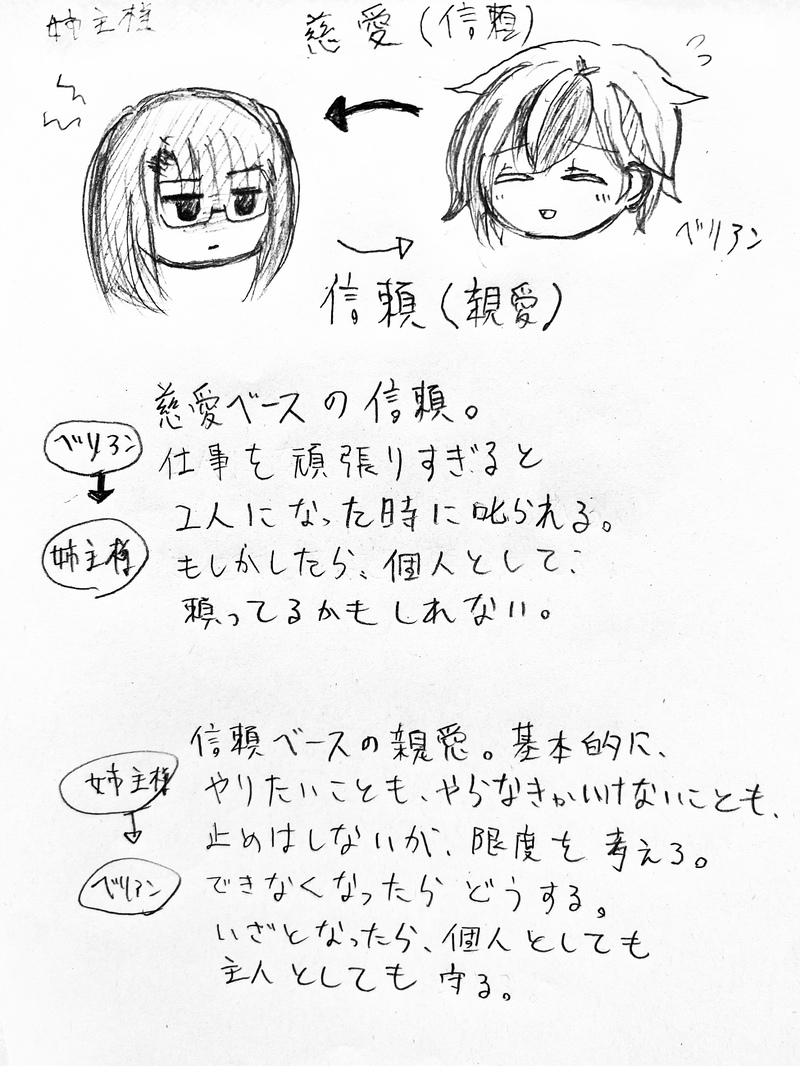 姉主様
慈愛(信頼)
ベリアン
信頼(親愛)
ベリアン
姉主様
慈愛ベースの信頼。
仕事を頑張りすぎると
2人になった時に叱られる。
もしかしたら、個人として
頼ってるかもしれない。
姉主様
ベリアン
信頼ベースの親愛。基本的に、
やりたいことも、やらなきゃいけないことも、
止めはしないが、限度を考えろ。
できなくなったらどうする。
いざとなったら、個人としても
主人としても守る。